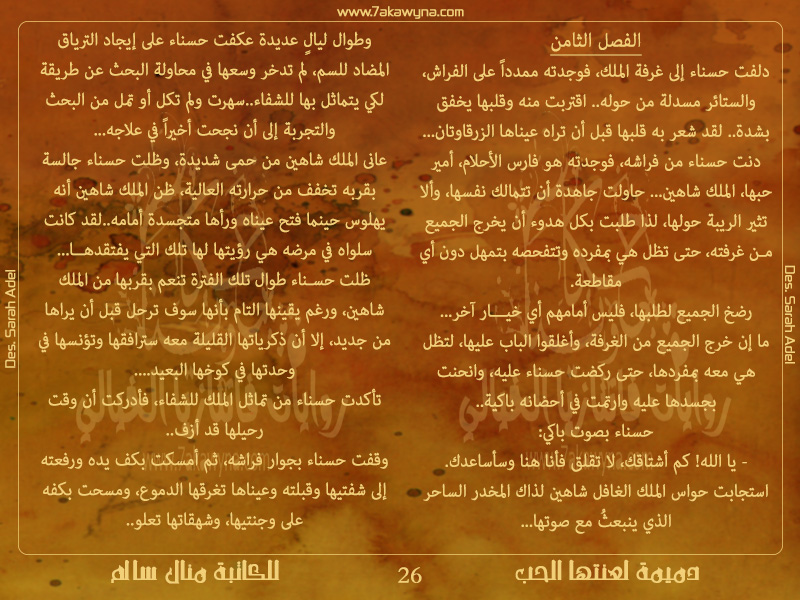 www.7akawyna.com
الفصل الثامن
دلفت حسناء إلى غرفة الملك، فوجدته ممدداً على الفراش،
والستائر مسدلة من حوله.. اقتربت منه وقلبها يخفق
بشدة.. لقد شعر به قلبها قبل أن تراه عيناها الزرقاوتان...
دنت حسناء من فراشه، فوجدته هو فارس الأحلام، أمير
حبها، الملك شاهين... حاولت جاهدة أن تتمالك نفسها، وألا
تثير الريبة حولها، لذا طلبت بكل هدوء أن يخرج الجميع
مـن غرفته، حتى تظل هي بمفرده وتتفحصه بتمهل دون أي
مقاطعة.
رضخ الجميع لطلبها، فليس أمامهم أي خيـــار آخر...
ما إن خرج الجميع من الغرفة، وأغلقوا الباب عليها، لتظل
هي معه بمفردها، حتى ركضت حسناء عليه، وانحنت
بجسدها عليه وارتمت في أحضانه باكية..
حسناء بصوت باكي:
- يا الله! كم أشتاقك، لا تقلق فأنا هنا وسأساعدك.
استجابت حواس الملك الغافل شاهين لذاك المخدر الساحر
الذي ينبعثُ مع صوتها...
وطوال ليالٍ عديدة عكفت حسناء على إيجاد الترياق
المضاد للسم، لم تدخر وسعها في محاولة البحث عن طريقة
لكي يتماثل بها للشفاء..سهرت ولم تكل أو تمل من البحث
والتجربة إلى أن نجحت أخيراً في علاجه...
عانى الملك شاهين من حمى شديدة، وظلت حسناء جالسة
بقربه تخفف من حرارته العالية، ظن الملك شاهين أنه
يهلوس حينما فتح عيناه ورأها متجسدة أمامه..لقد كانت
سلواه في مرضه هي رؤيتها لها تلك التي يفتقدهــا...
ظلت حسـناء طوال تلك الفترة تنعم بقربها من الملك
شاهين، ورغم يقينها التام بأنها سوف ترحل قبل أن يراها
من جديد، إلا أن ذكرياتها القليلة معه سترافقها وتؤنسها في
وحدتها في كوخها البعيد....
تأكدت حسناء من تماثل الملك للشفاء، فأدركت أن وقت
رحيلها قد أزف..
وقفت حسناء بجوار فراشه، ثم أمسكت بكف يده ورفعته
إلى شفتيها وقبلته وعيناها تغرقها الدموع، ومسحت بكفه
على وجنتيها، وشهقاتها تعلو..
Des. Sarah Adel
Des. Sarah Adel
دميمة لعنتها الحب
26
للكاتبة منال سالم